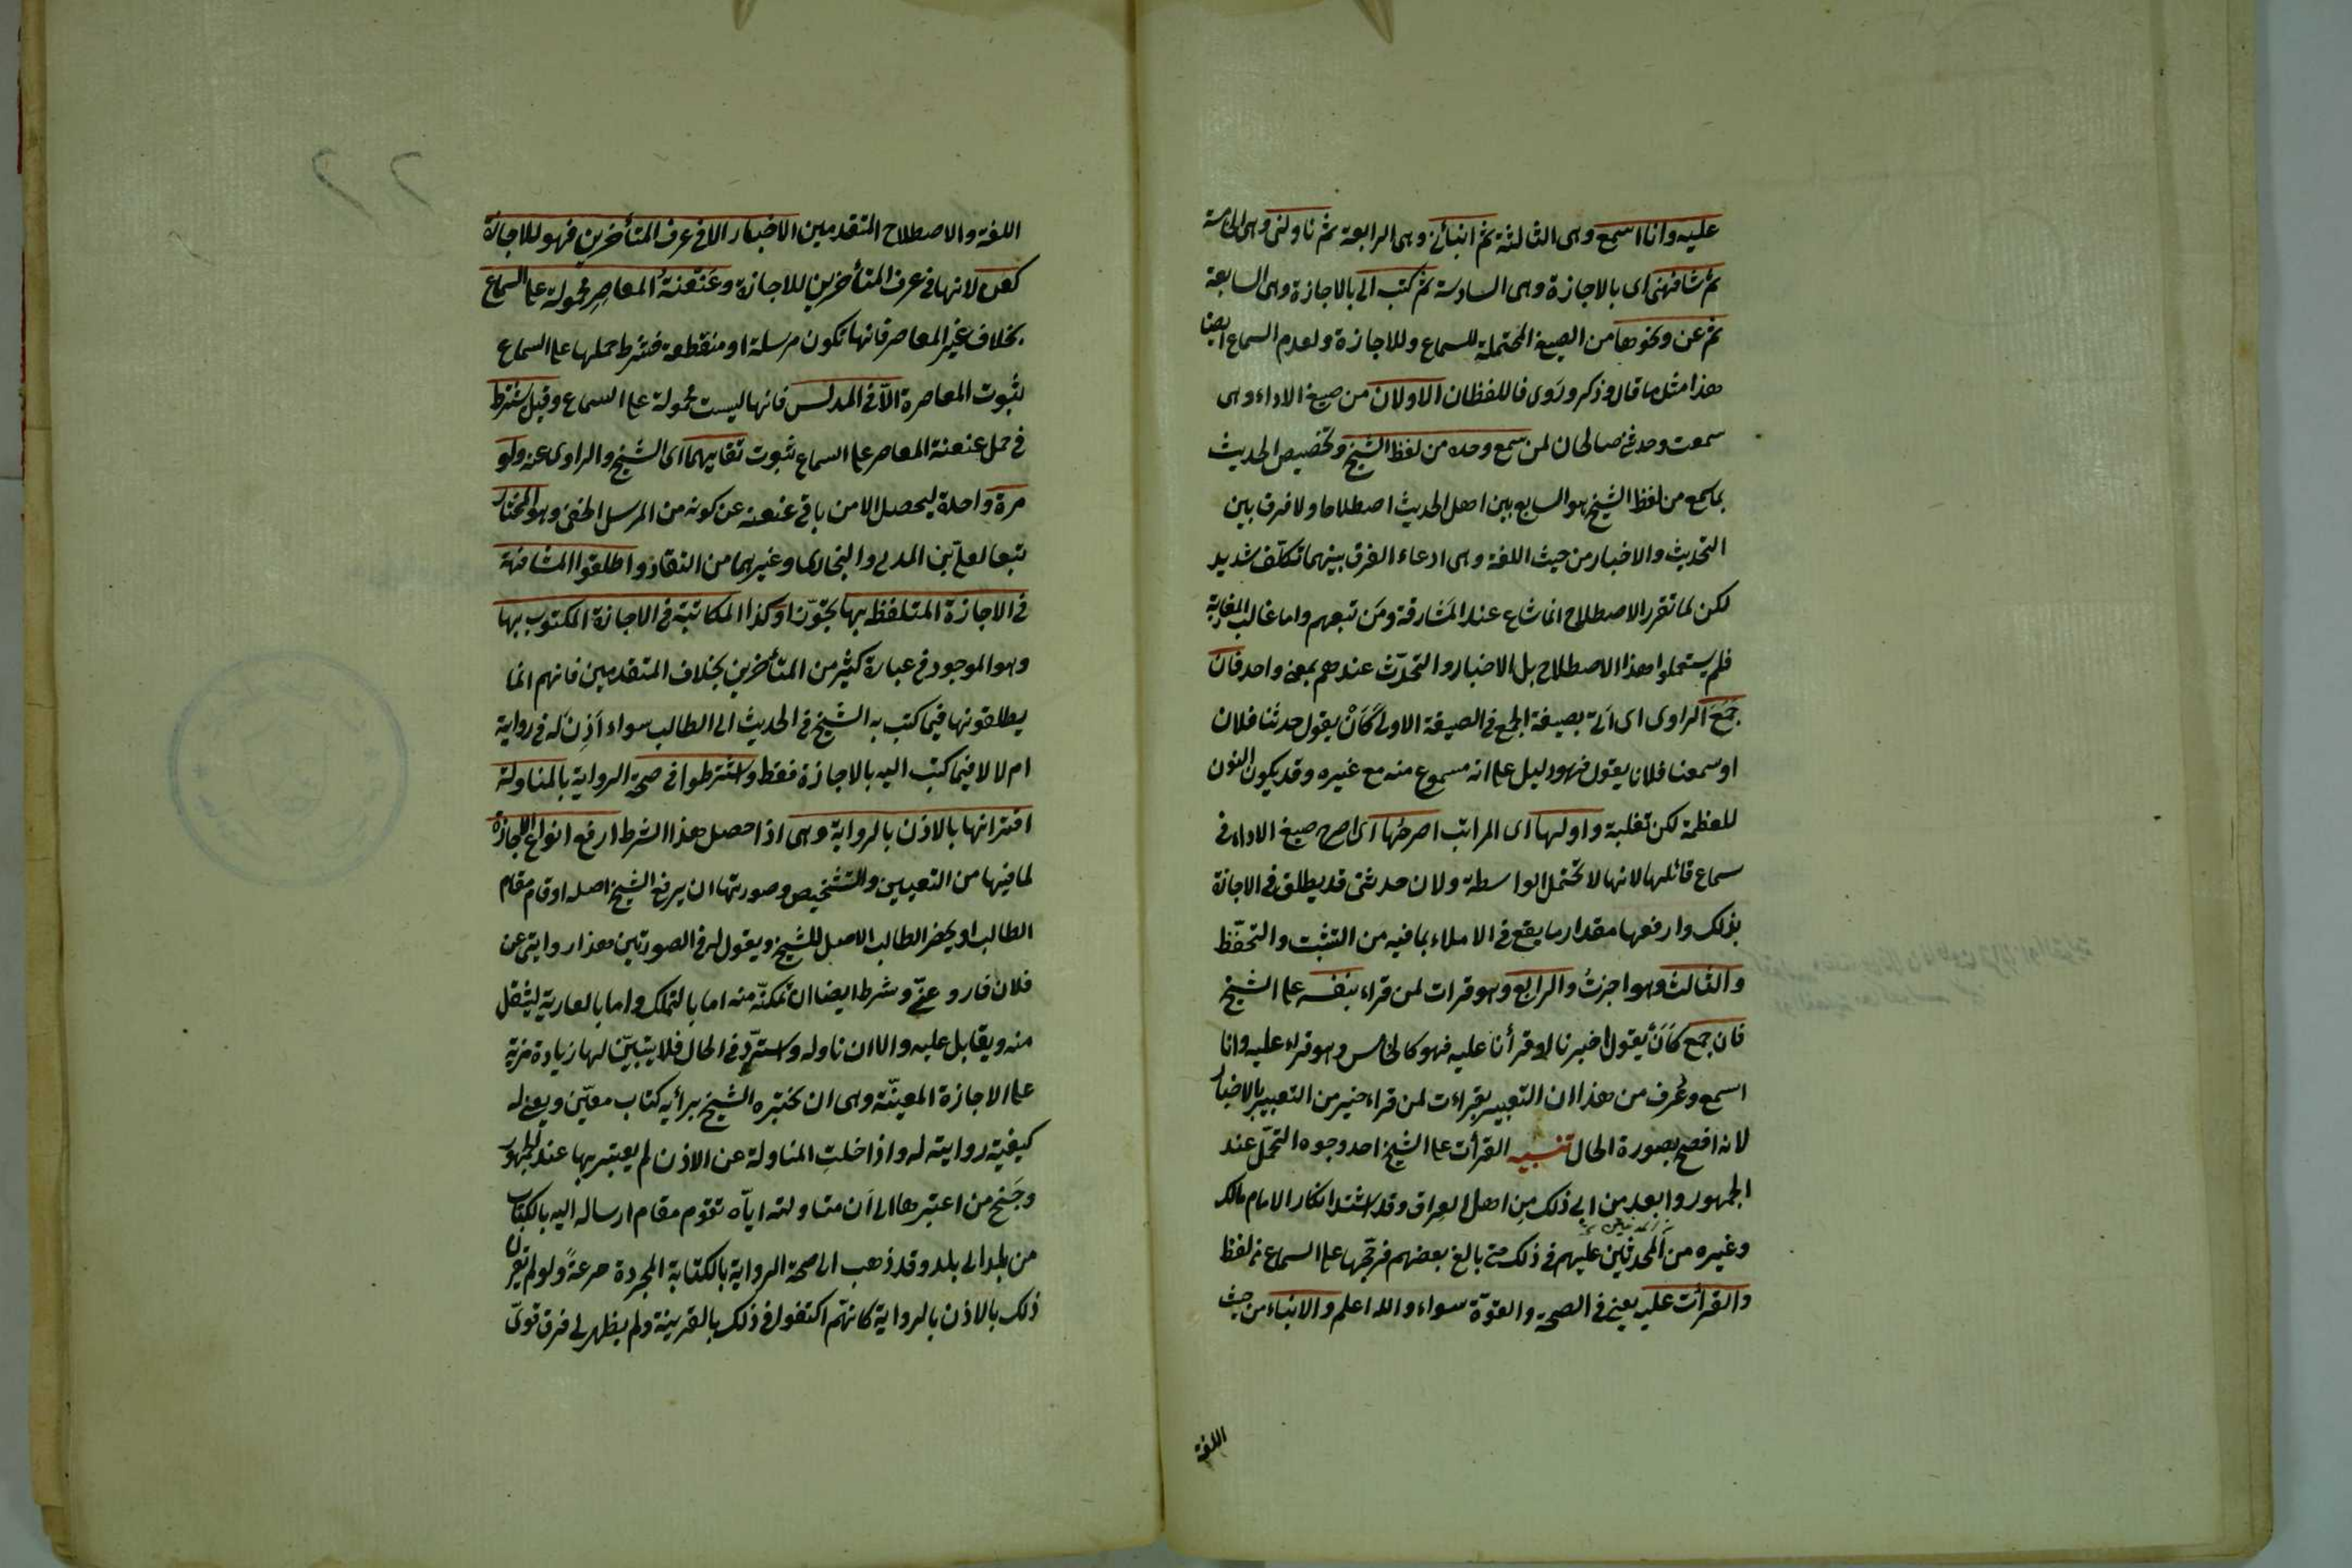 عليه وانا اسمع وهى الثالثة ثم انبأنى وهى الرابعة ثم ناولنى وهى الخامسة
ثم شافهنى اى بالاجازة وهى السادسة ثم كتب الى بالاجازة وهى السابعة
ثم عن ونحوها من الصيغ المحتملة للسماع وللاجازة ولعدم السماع ايضا
هذا مثل ما قال وذكر وروى فاللفظان الاولان من صيغ الاداء وهى
سمعت وحدثنى صالحان لمن سمع وحده من لفظ الشيخ وتخصيص الحديث
بما سمع من لفظ الشيخ هو السايع بين اهل الحديث اصطلاحا ولا فرق بين
التحديث والاخبار من حيث اللغة وهى ادعاء الفرق بينهما تكلف شديد
لكن لما تقرر الاصطلاح انما شاع عند المشارقة ومن تبعهم واما غالب المغاربة
فلم يستعملوا هذا الاصطلاح بل الاخبار والتحدّث عندهم بمعنى واحد فان
جَمَعَ الراوى اى اتى بصيغة الجمع فى الصيغة الاولى كَاَنْ يقول حدثنا فلان
او سمعنا فلانا يقول فهو دليل على انه مسموع منه مع غيره وقد يكون النون
للعظمة لكن تغلبة واولها اى المراتب اصرحها اى اصرح صيغ الاداء فى
سماع قائلها لانها لا تحتمل الواسطة ولان حدثنى قد يطلق فى الاجازة
بذلك وارفعها مقدارا ما يقع فى الاملاء بما فيه من التثبت والتحفّظ
والثالث وهو اخبرت والرابع وهو قرات لمن قراء بنفسه على الشيخ
فان جمع كَاَنْ يقول اخبرنا او قرأنا عليه فهو كالخامس وهو قراء عليه وانا
اسمع وعُرف من هذا ان التعبير بقراءت لمن قراء خير من التعبير بالاخبار
لانه افصح بصورة الحال تنبيه القرأت على الشيخ احد وجوه التحمّل عند
الجمهور وابعد من ابى ذلك مِن اهل العراق وقد اشتد انكار الامام مالك
وغيره من المحدثين عليهم فى ذلك حتى بالغ بعضهم فرجّحها على السماع من لفظ
والقرأت عليه يعنى فى الصحة والقوّة سواء والله اعلم والانباء من حيث
اللغة
اللغة والاصطلاح المتقدمين الاخبار الا فى عرف المتأخرين فهو للاجازة
كعن لانها فى عرف المتأخرين للاجازة وعَنْعَنَةُ المعاصِرِ محمولة على السماع
بخلاف غير المعاصر فانها تكون مرسلة او منقطعة فشرط حملها على السماع
ثبوت المعاصرة الّا فى المدلس فانها ليست محمولة على السماع وقيل يشترط
فى حمل عنعنة المعاصر على السماع ثبوت تقابهما اى الشيخ والراوى عنه ولو
مرة واحدة ليحصل الامن باقى عنعنه عن كونه من المرسل الخفى وهو المختار
تبعا لعلىّ بن المدينى والبخارى وغيرهما من النقاد واطلقوا المشافهة
فى الاجازة المتلفظ بها تجوّزا وكذا المكاتبة فى الاجازة المكتوب بها
وهو الموجود فى عبارة كثير من المتأخرين بخلاف المتقدمين فانهم انما
يطلقونها فيما كتب به الشيخ فى الحديث الى الطالب سواء اَذِنَ له فى رواية
ام لا لا فيما كتب اليه بالاجازة فقط واشترطوا فى صحة الرواية بالمناولة
اقترانها بالاذن بالرواية وهى اذا حصل هذا الشرط ارفع انواع الاجازة
لما فيها من التعيين والتشخيص وصورتها ان يرفع الشيخ اصله او قام مقام
الطالب او يحضر الطالب الاصل للشيخ ويقول له فى الصورتين هذا روايتى عن
فلان فاروِ عنّى وشرط ايضا ان تمكنّه منه اما بالتملك واما بالعارية لينقل
منه ويقابل عليه والا ان ناوله واستردّ فى الحال فلا يتبيّن لها زيادة مزية
على الاجازة المعيّنة وهى ان يخبره الشيخ برأيه كتاب معيّن ويعين له
كيفية روايته له واذا خلت المناولة عن الاذن لم يعتبر بها عند الجمهور
وجَنَح من اعتبرها الى اَن مناولته ايّاه تقوم مقام ارساله اليه بالكتاب
من بلد الى بلد وقد ذهب الى صحة الرواية بالكتابة المجردة جماعةٌ ولو لم يقرن
ذلك بالاذن بالرواية كانهّم اكتفوا فى ذلك بالقرينة ولم يظهر لى فرق قوىّ